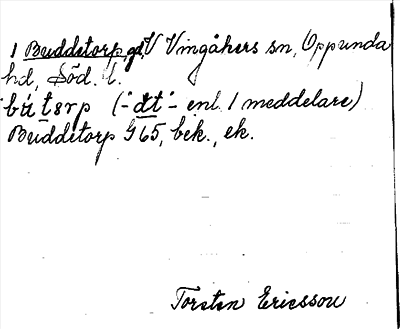 1 Buddetorp, gd, V Vingåkers sn, Oppunda
hd, Söd. l.
bu̇tɜrp (-dt- enl. 1 meddelare)
Buddetorp G 65, bek., ek.
Torsten Ericsson